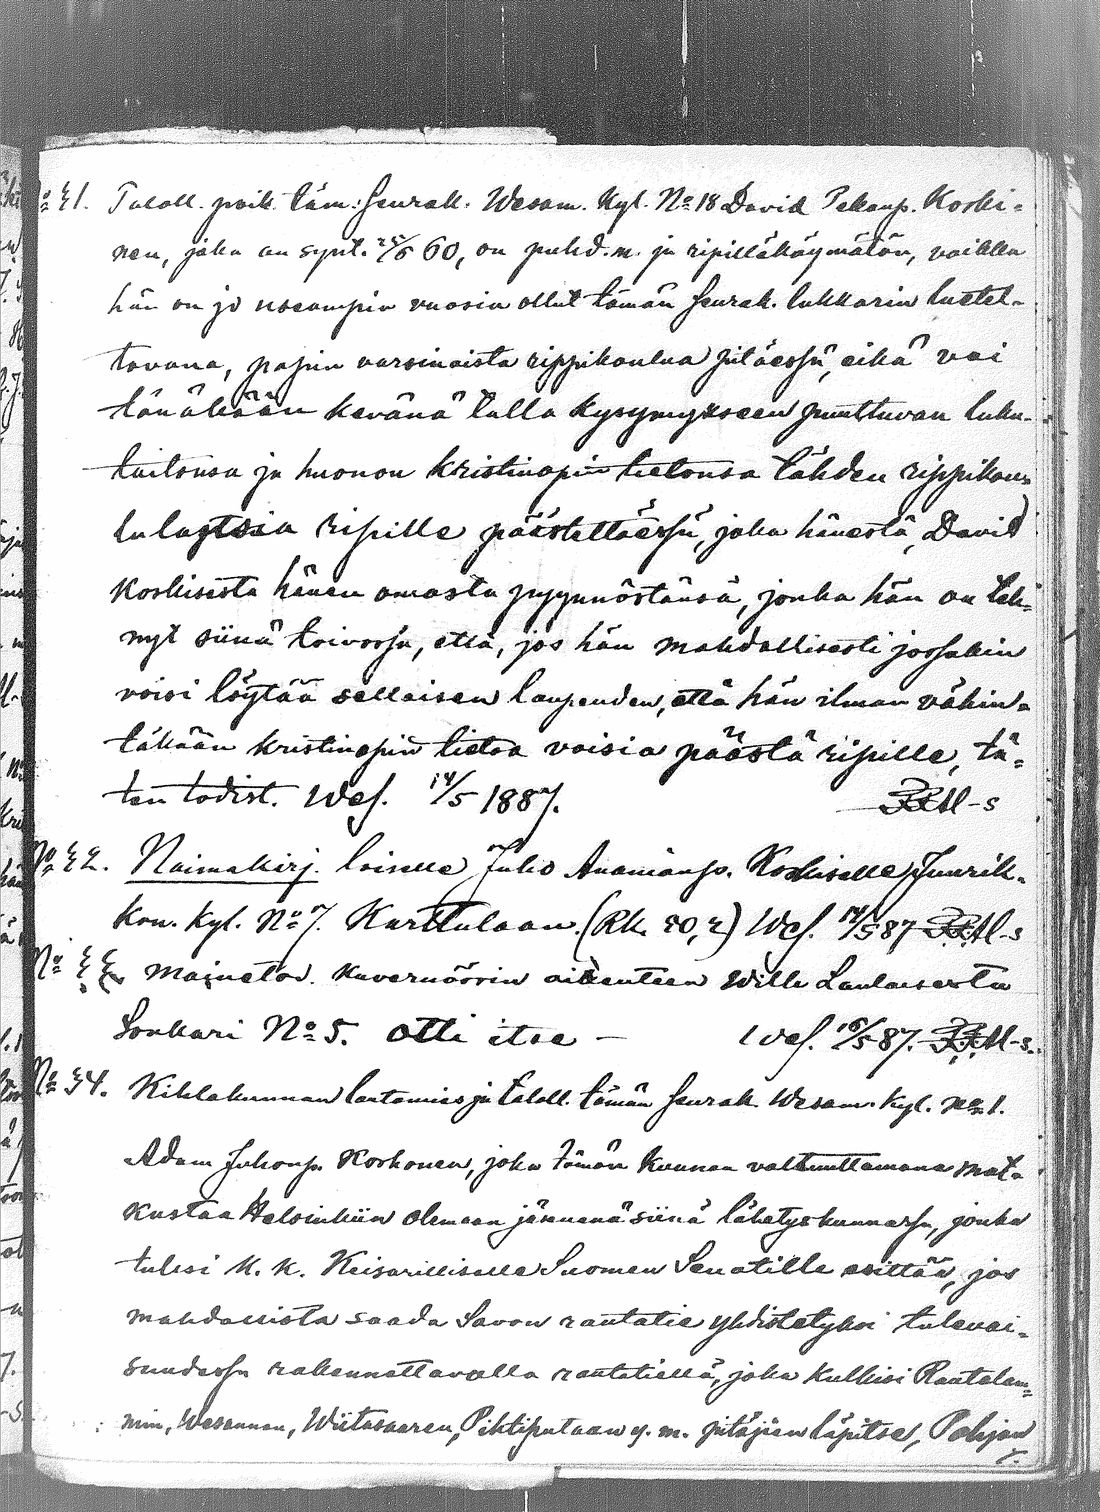 № 31. Taloll. poik. täm. seurak. Wesam. kyl. № 18 David Pekanp. Koski-
nen, joka on synt. 25/6 60, on puhd. m. ja ripilläkäymätön, vaikka
hän on jo useampia vuosia ollut tämän seurak. lukkarin luetel-
tavana, papin varsinaista rippikoulua pitäessä, eikä voi
tänäkään kevänä tulla kysymykseen puuttuvan luku-
taitonsa ja huonon kristinopin tietonsa tähden rippikou-
lulaisia ripille päästettäessä, joka hänestä, David
Koskisesta hänen omasta pyynnöstänsä, jonka hän on teh-
nyt siinä toivossa, että, jos hän mahdollisesti jossakin
voisi löytää sellaisen laupeuden, että hän ilman vähin-
täkään kristinopin tietoa voisia päästä ripille, tä-
ten todist. Wes. 14/5 1887.
№ 32. Naimakirj. loiselle Juho Ananianp. Koskiselle Juurik-
kon. kyl. № 7. Karttulaan. (Rk. 20,2) Wes. 14/5 87
№ 33. Mainetod. kuvernöörin oikeuteen Wille Laulaisesta
Sonkari № 5. otti itse — Wes. 16/5 87.
№ 34. Kihlakunnan lautamies ja taloll. tämän seurak. Wesam. kyl. № 1.
Adam Juhonp. Korhonen, joka tämän kunnan valtuuttamana mat-
kustaa Helsinkiin olemaan jäsenenä siinä lähetyskunnassa, jonka
tulisi K. K. Keisarilliselle Suomen Senatille esittää, jos
mahdollista saada Savon rautatie yhdistetyksi tulevai-
suudessa rakennettavalla rautatiellä, joka kulkisi Rautalam-
min, Wesannon, Wiitasaaren, Pihtiputaan y. m. pitäjien läpitse, Pohjan